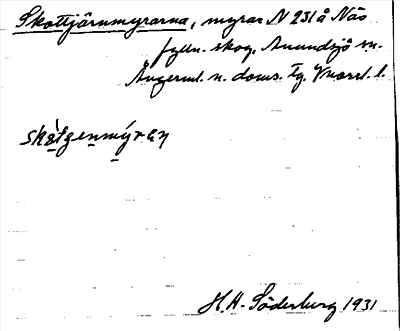 Skottjärnmyrarna, myrar N 231 å Näs
fylln. skog, Anundsjö sn.
Ångerml. n. doms. tg. Vnorrl. l.
skòtzenmýran
H. H. Söderburg 1931